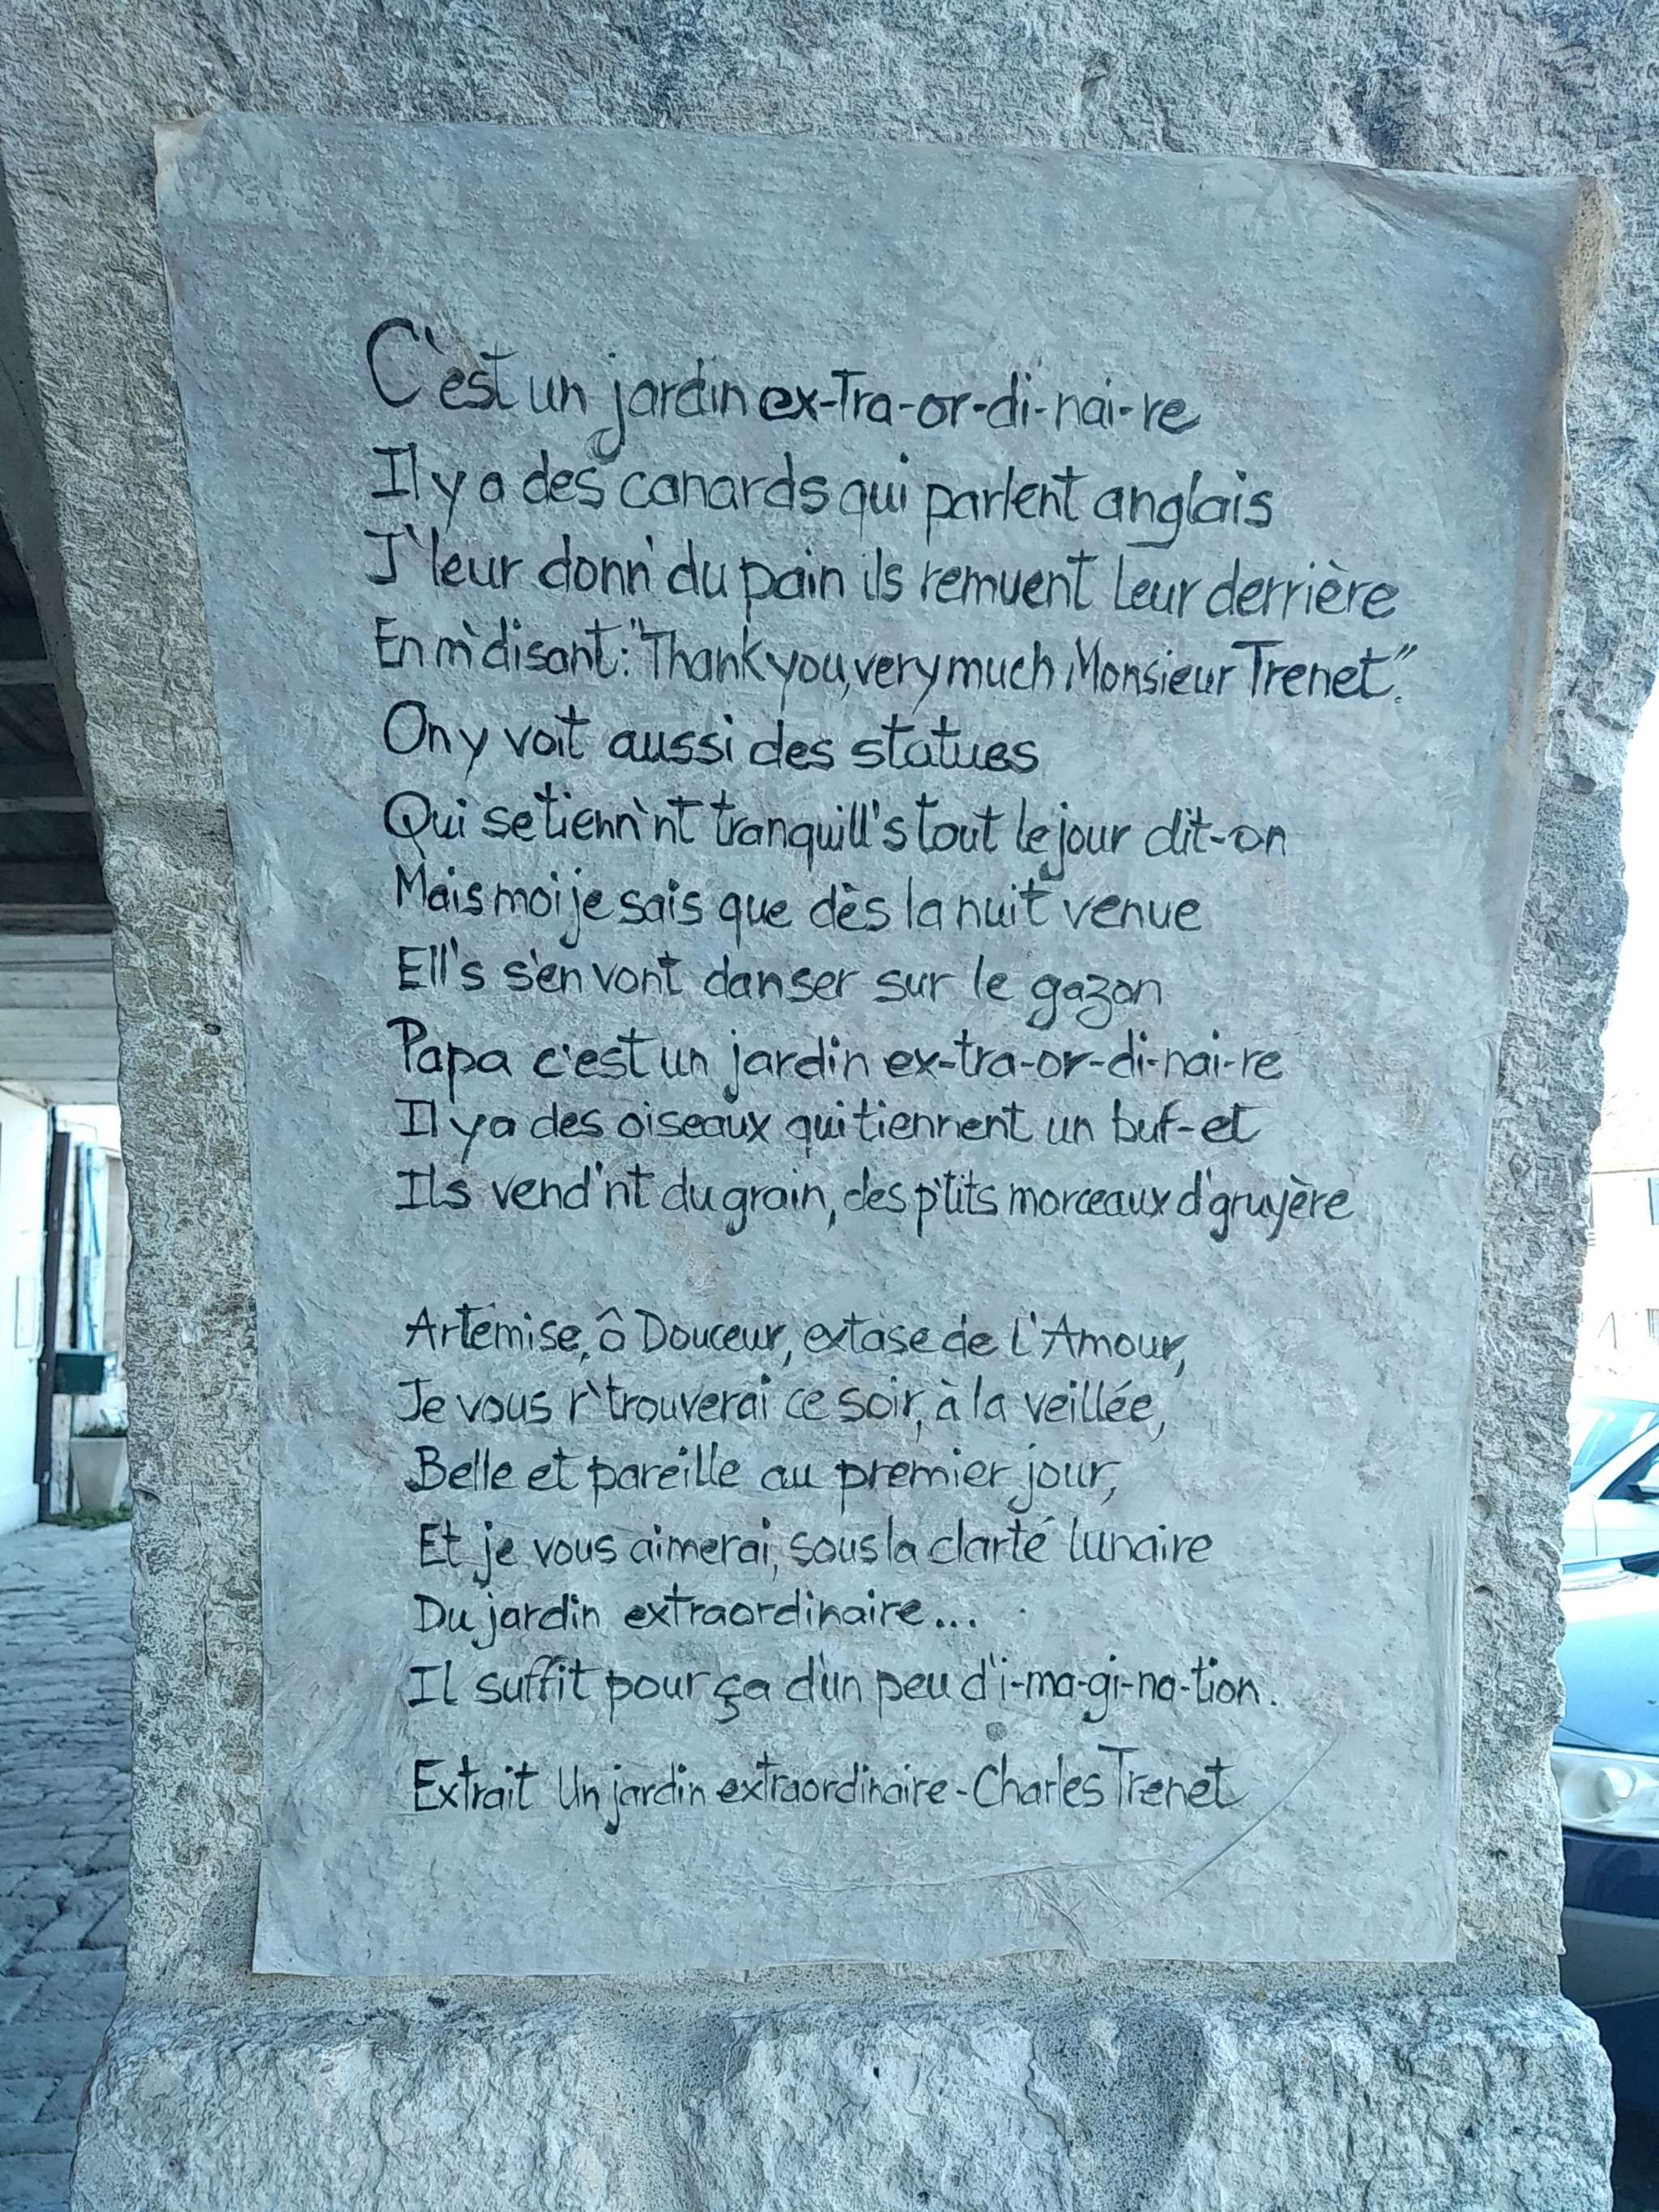 C'est un jardin ex-tra-or-di-nai-re
Il y a des canards qui parlent anglais
J'leur donn' du pain ils remuent leur derrière
En m'disant : "Thank you, very much Monsieur Trenet".
On y voit aussi des statues
Qui se tienn'nt tranquill's tout le jour dit-on
Mais moi je sais que dès la nuit venue
Ell's s'en vont danser sur le gazon
Papa c'est un jardin ex-tra-or-di-nai-re
Il y a des oiseaux qui tiennent un buf-et
Ils vend'nt du grain, des p'tits morceaux d'gruyère
Artémise, ô Douceur, extase de l'Amour,
Je vous r'trouverai ce soir, à la veillée,
Belle et pareille au premier jour,
Et je vous aimerai, sous la clarté lunaire
Du jardin extraordinaire...
Il suffit pour ça d'un peu d'i-ma-gi-na-tion.
Extrait Un jardin extraordinaire - Charles Trenet